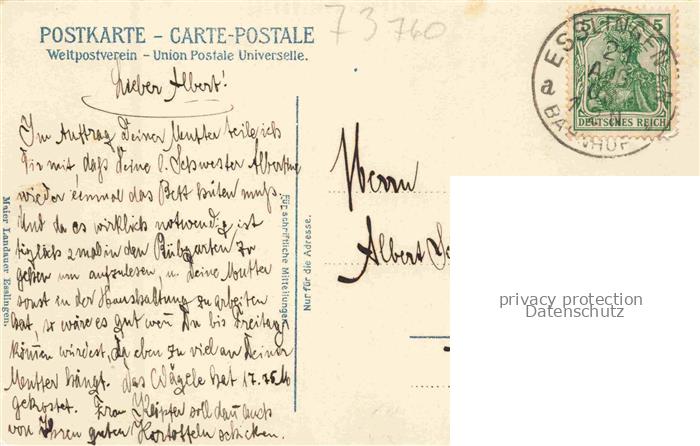 73760
POSTKARTE – CARTE-POSTALE
Weltpostverein – Union Postale Universelle.
Lieber Albert!
Im Auftrag Deiner Mutter teile ich
Dir mit, daß Deine l. Schwester Albertine
wieder einmal das Bett hüten muß.
Und da es wirklich notwendig ist
täglich 2mal in den Baumgarten zu
gehen um aufzulesen, u. Deine Mutter
sonst in der Haushaltung zu arbeiten
hat, so wäre es gut wenn Du bis Freitag
kommen würdest, da eben zu viel an Deiner
Mutter hängt. Das Wägele hat 17.75 M
gekostet. Frau soll dann auch
von Ihren guten Kartoffeln schicken.
Maier Landauer Esslingen.
Für schriftliche Mitteilungen.
Nur für die Adresse.
Herrn
Albert
ESSLINGEN
a
BAHNHOF
5
DEUTSCHES REICH
privacy protection
Datenschutz